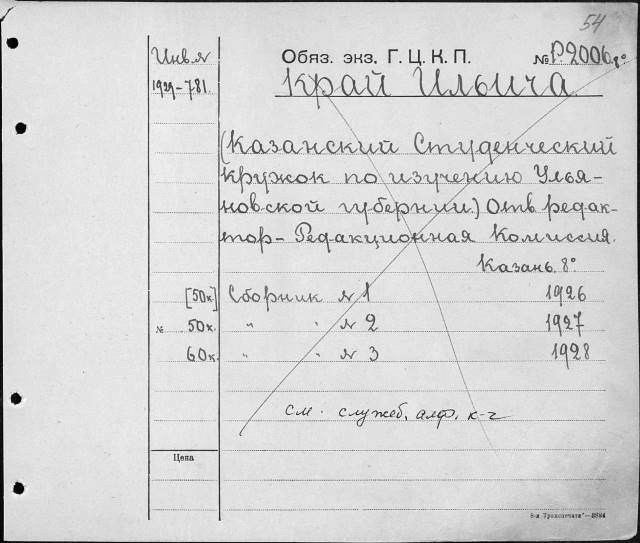 54
Инв. №
Обяз. экз. Г. Ц. К. П.
№ Р.2006 8°
1929-781.
Край Ильича.
(Казанский Студенческий
кружок по изучению Улья-
новской губернии.) Отв. редак-
тор - Редакционная Комиссия.
Казань. 8°
[50к.] Сборник № 1 1926
№ 50к. " " № 2 1927
60к. " " № 3 1928
см. служеб. алф. к-г
Цена
8-я „Транспечати“—3884